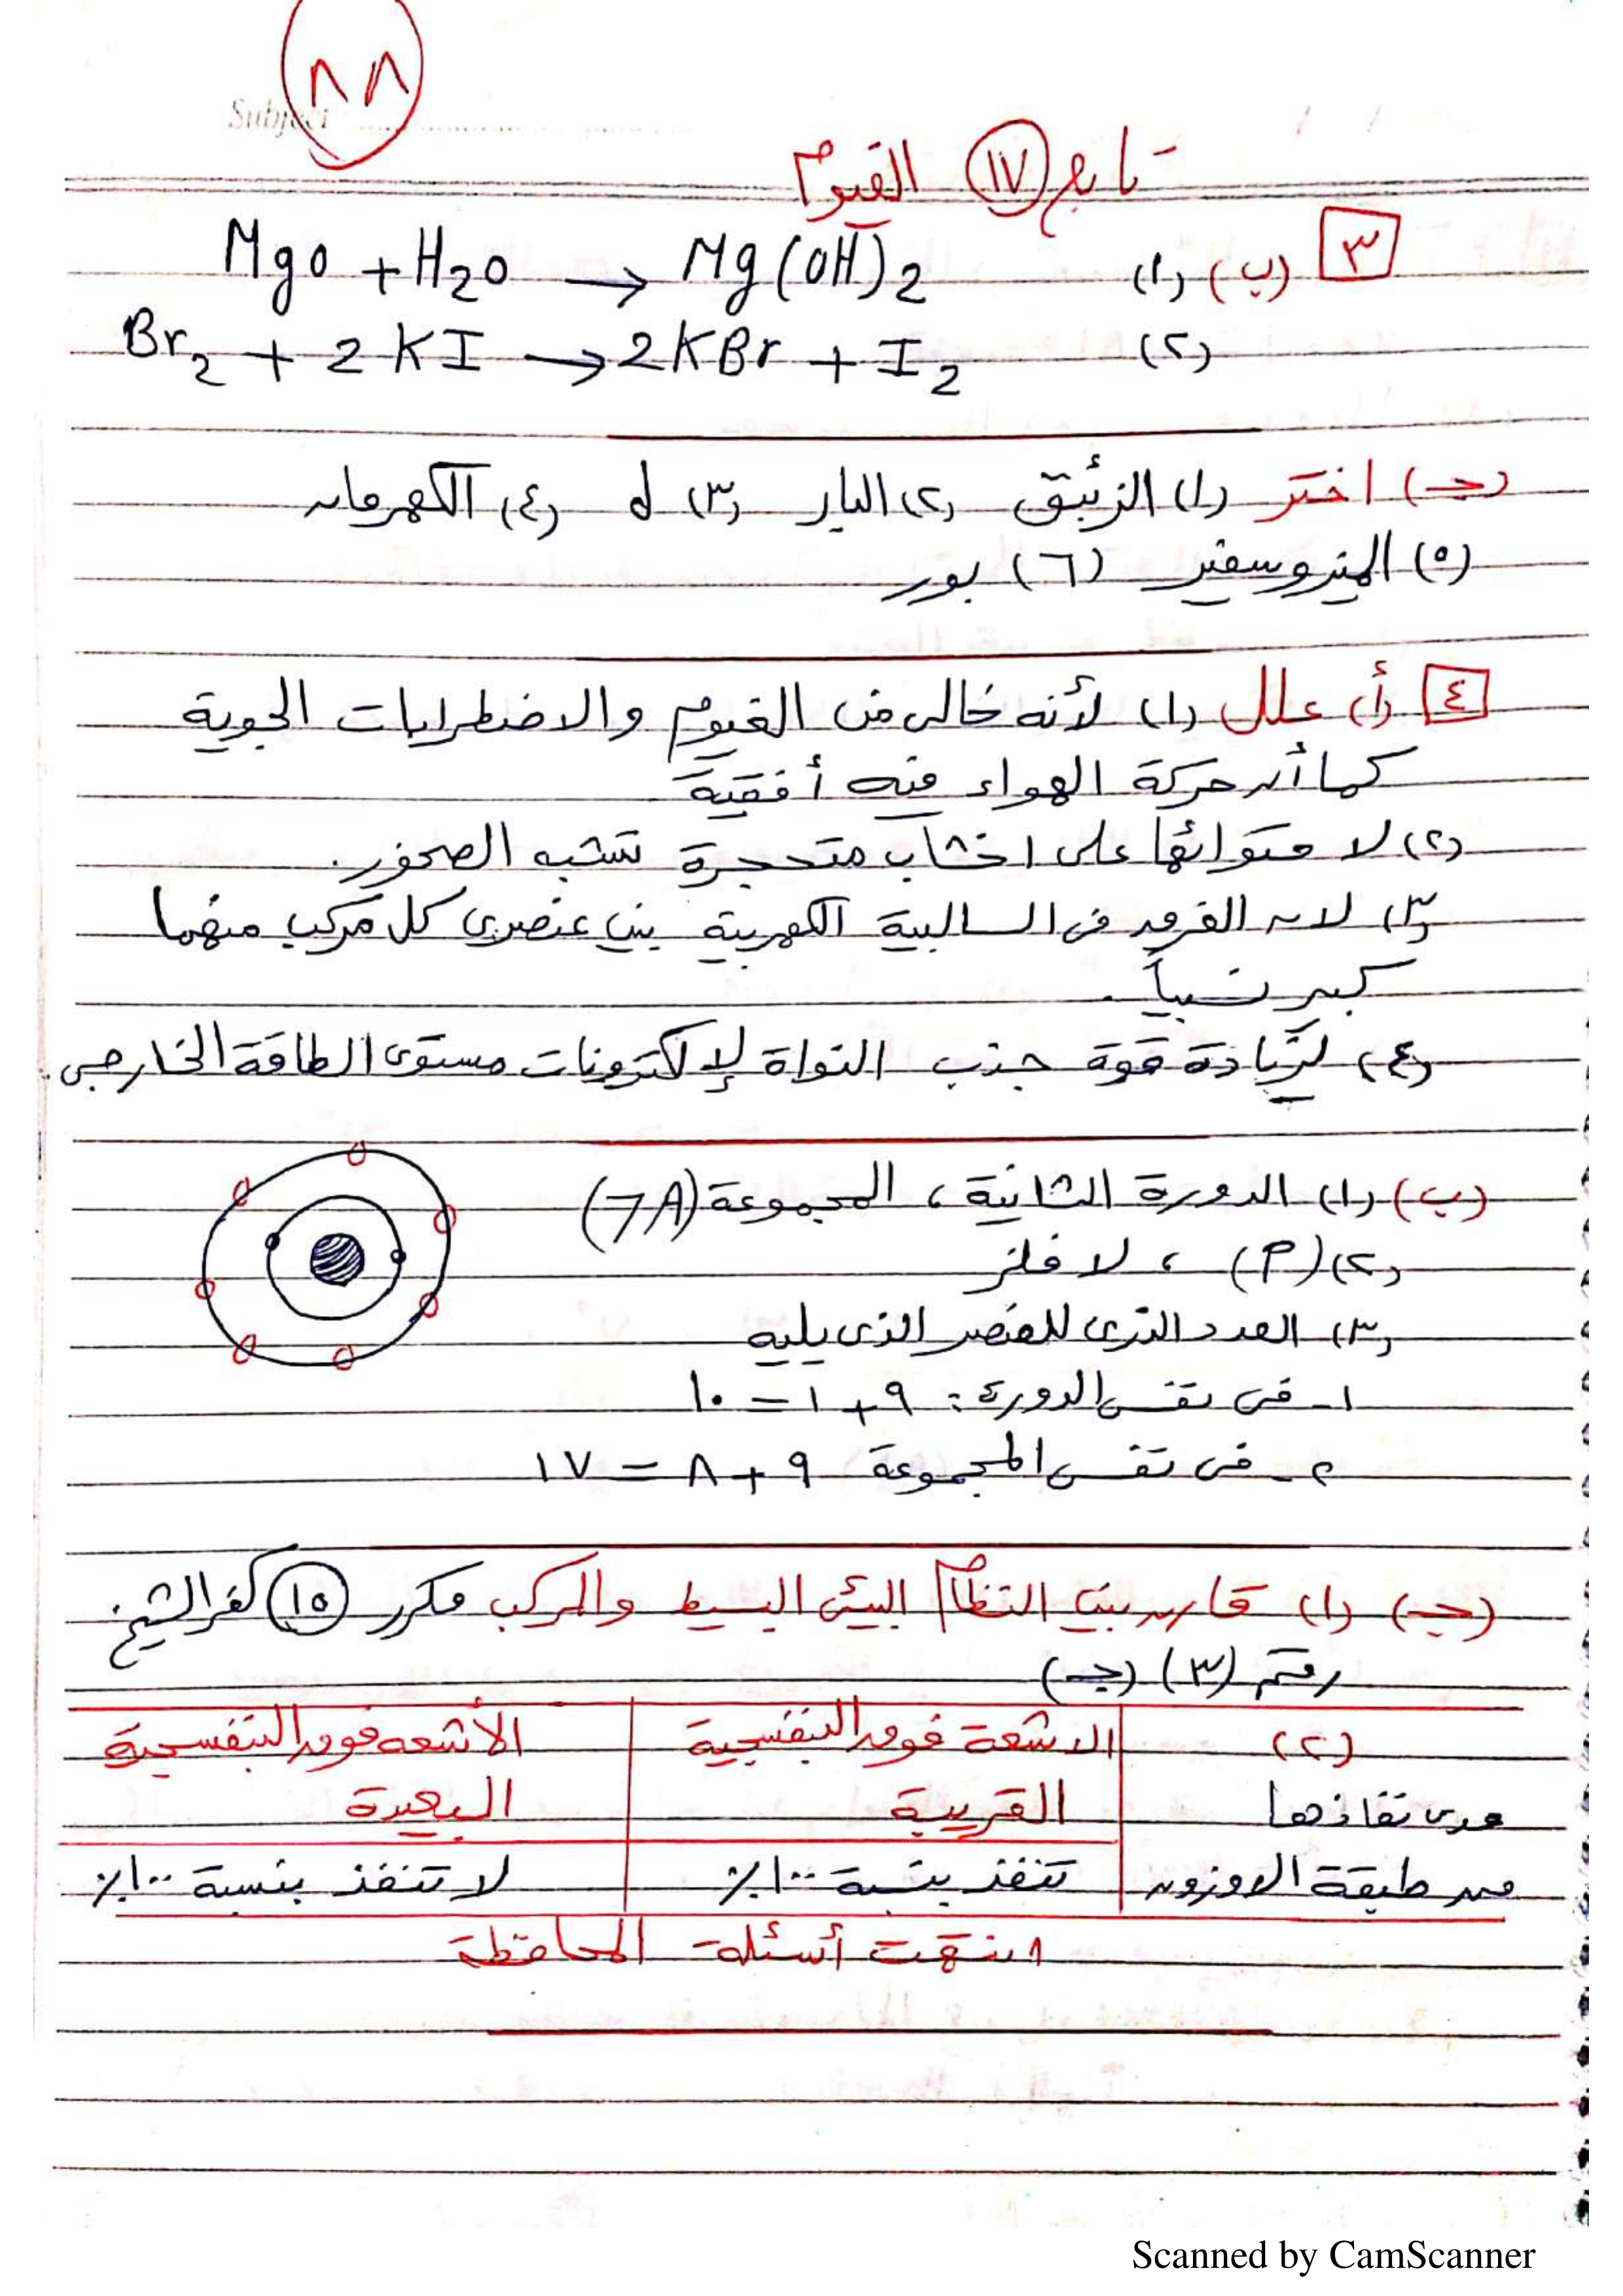 ٨٨
Subject
تابع (١٧) الفيوم
٣ (ب) (١) MgO + H2O → Mg(OH)2
(٢) Br2 + 2KI → 2KBr + I2
(جـ) اختر (١) الزئبق (٢) البار (٣) d (٤) الكهرمان
(٥) الميزوسفير (٦) بور
٤ (أ) علل (١) لأنه خالى من الغيوم والاضطرابات الجوية
كما أن حركة الهواء فيه أفقية
(٢) لاحتوائها على اخشاب متحجرة تشبه الصخور.
(٣) لان الفرق فى السالبية الكهربية بين عنصرى كل مركب منهما
كبير نسبياً.
(٤) لزيادة قوة جذب النواة لإلكترونات مستوى الطاقة الخارجى.
(ب) (١) الدورة الثانية ، المجموعة (7A)
(٢) (P) ، لا فلز
(٣) العدد الذرى للعنصر الذى يليه
١- فى نفس الدورة : ٩ + ١ = ١٠
٢- فى نفس المجموعة ٩ + ٨ = ١٧
(جـ) (١) قارن بين النظام البيئى البسيط والمركب مكرر (١٥) كفر الشيخ
رقم (٣) (جـ)
(٢) الاشعة فوق البنفسجية الأشعه فوق البنفسجية
مدى نفاذها القريبة البعيدة
من طبقة الاوزون تنفذ بنسبة ١٠٠٪ لا تنفذ بنسبة ١٠٠٪
انتهت أسئلة المحافظة
Scanned by CamScanner